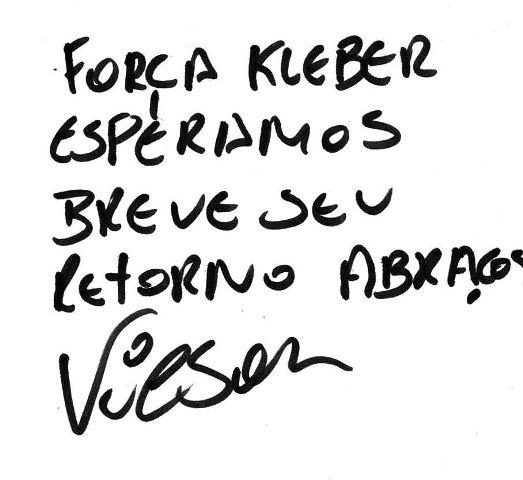 FORÇA KLEBER
ESPERAMOS
BREVE SEU
RETORNO ABRAÇOS
Vilson